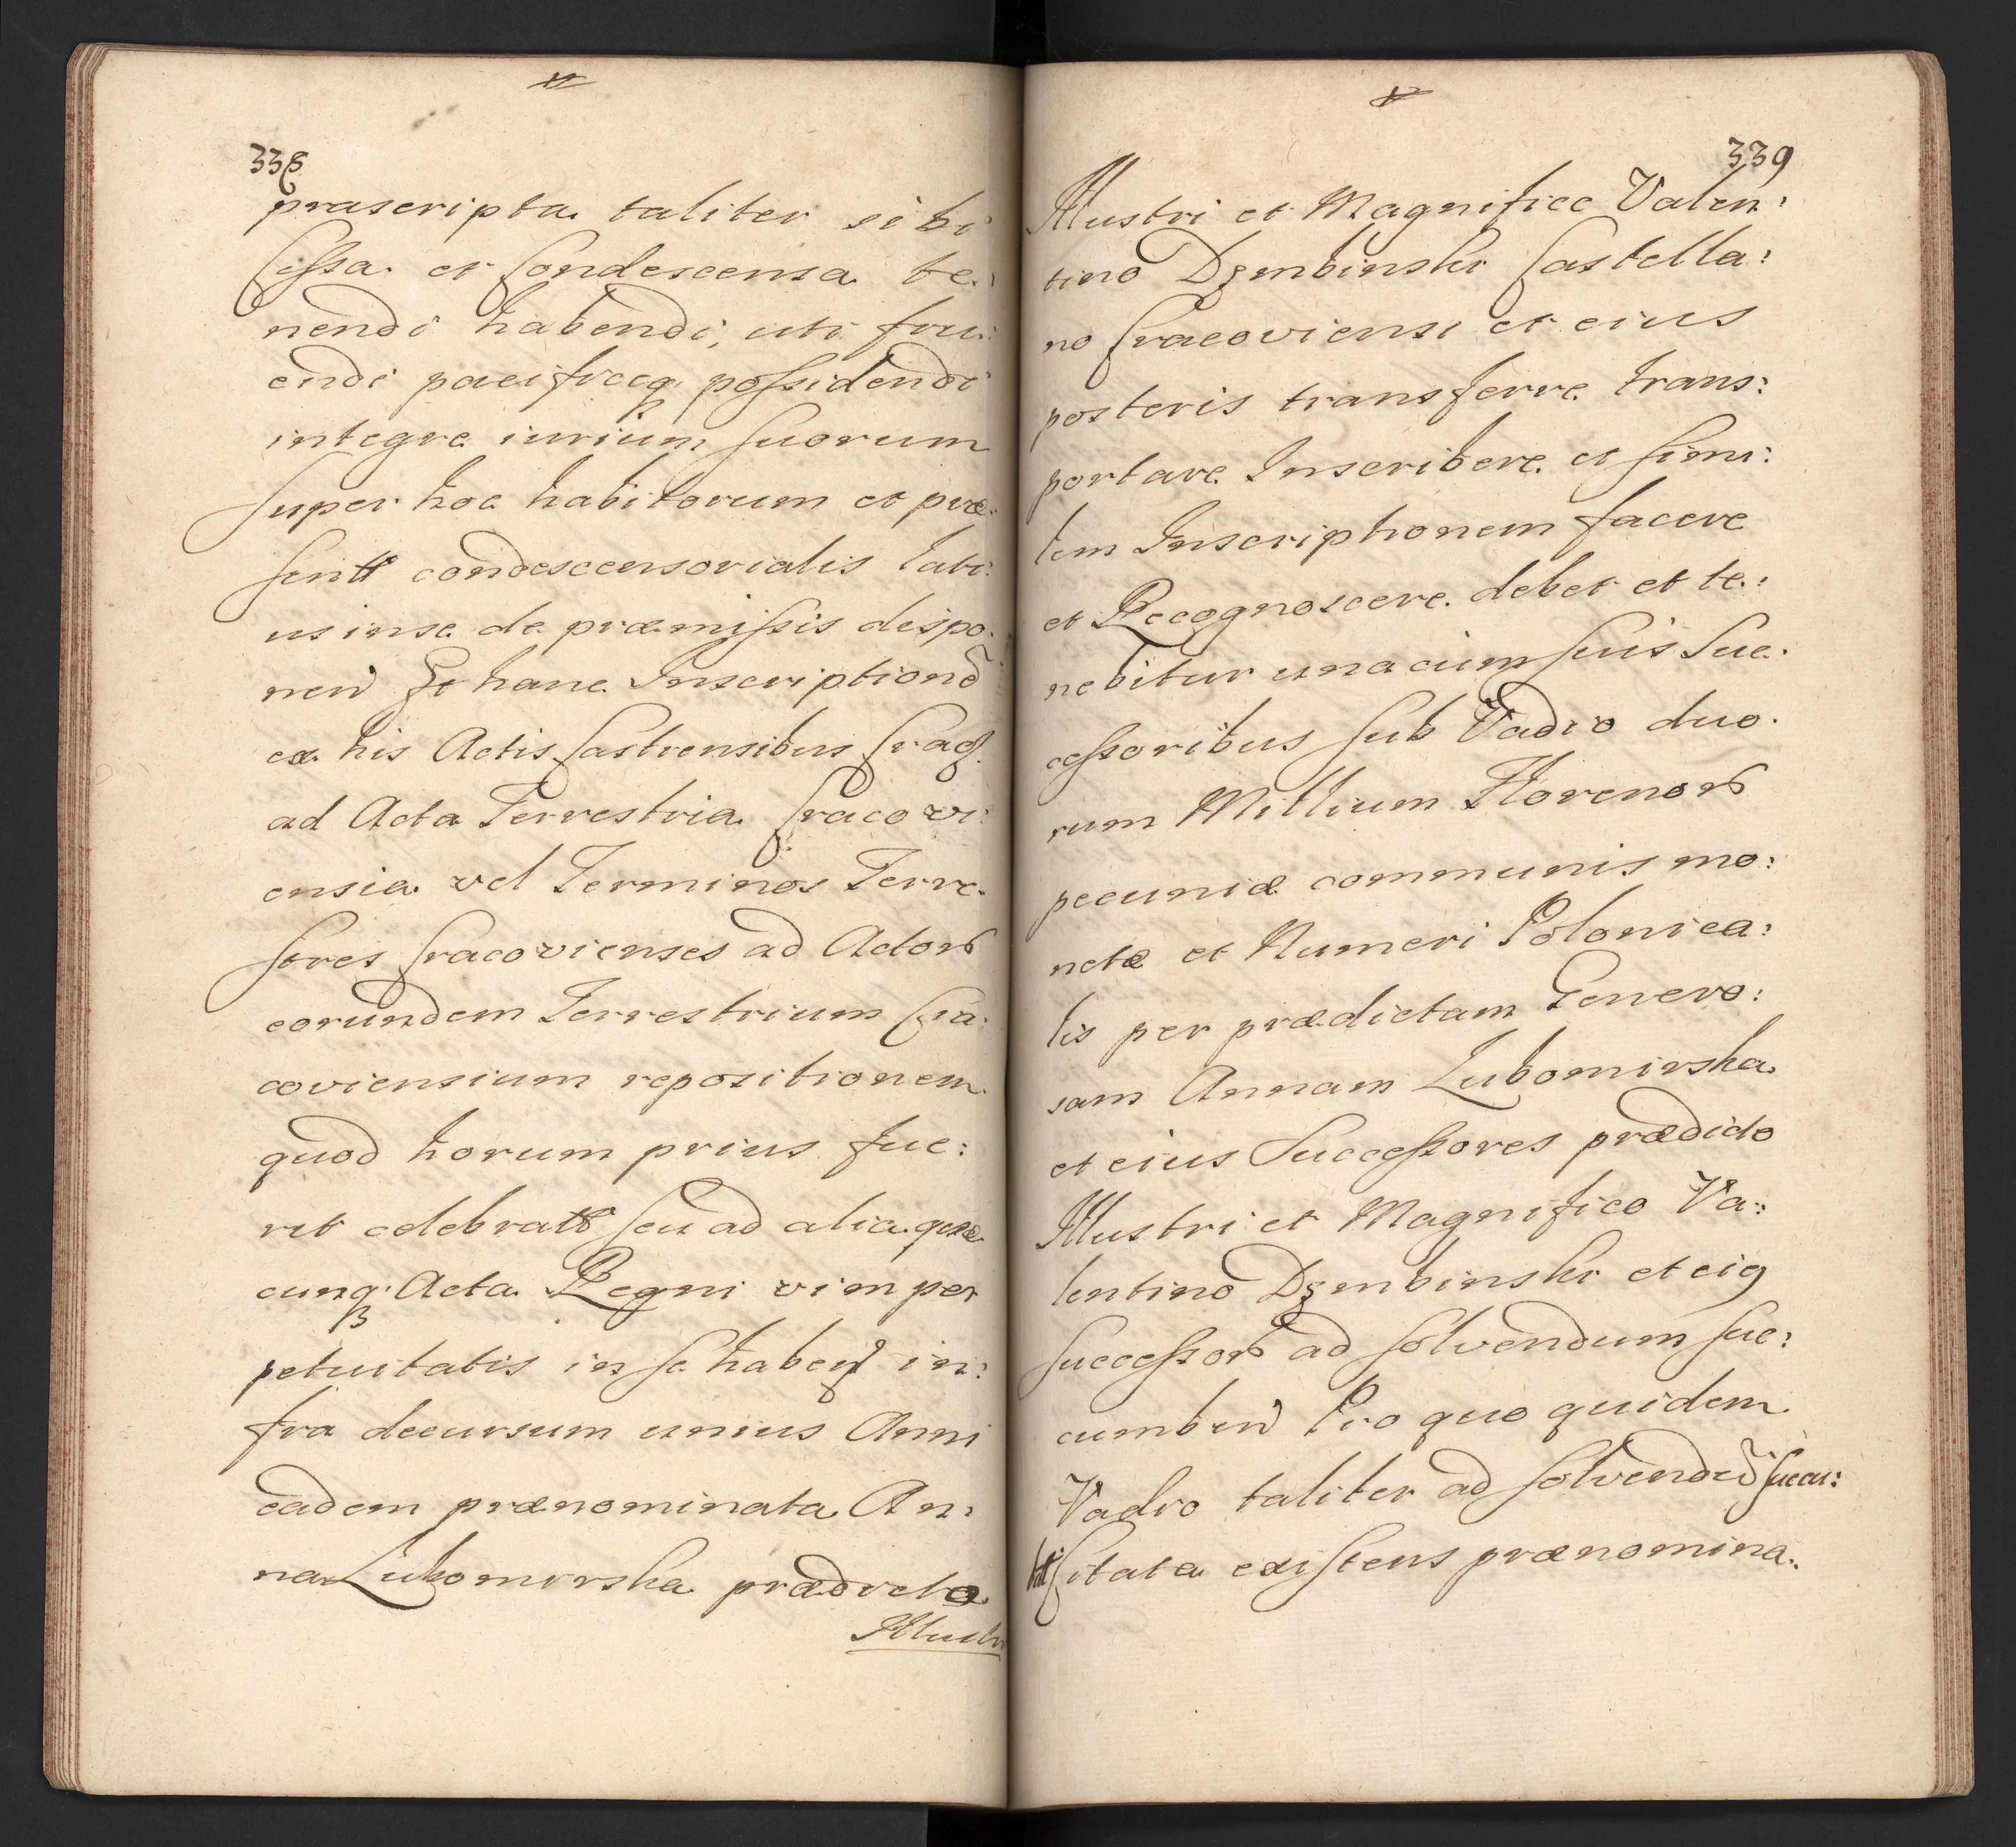 338
præscripta taliter sibi
Cessa et Condescensa te:
nendi habendi, uti fru:
endi pacificeq₃ possidendi
integre iurium suorum
super hoc habitorum et præ:
sentt condescensorialis lati:
us inse de præmissis dispo:
nen Et hanc Inscriptionē
ex his Actis Castrensibus Crac
ad Acta Terrestria Cracovi:
ensia vel Terminos Terre:
stres Cracovienses ad Actor
eorundem Terrestrium Cra:
coviensium repositionem
quod horum prius fue:
rit celebratt seu ad alia quæ
cunq₃ Acta Regni vim per
petuitatis in se haben in:
fra decursum unius Anni
eadem prænominata An:
na Lubomirska prædicto
Illustri
339
Illustri et Magnifico Valen:
tino Dembinski Castella:
no Cracoviensi et eius
posteris transferre trans:
portare Inscribere et simi:
lem Inscriptionem facere
et Recognoscere debet et te:
nebitur unacum suis Suc:
cessoribus sub Vadio duo:
rum Millium Florenor
pecuniæ communis mo:
netæ et Numeri Polonica:
lis per prædictam Genero:
sam Annam Lubomirska
et eius Successores prædicto
Illustri et Magnifico Va:
lentino Dembinski et ei9
successor ad solvendum suc:
cumben Pro quo quidem
Vadio taliter ad solvendū succu:
sitata existens prænomina: